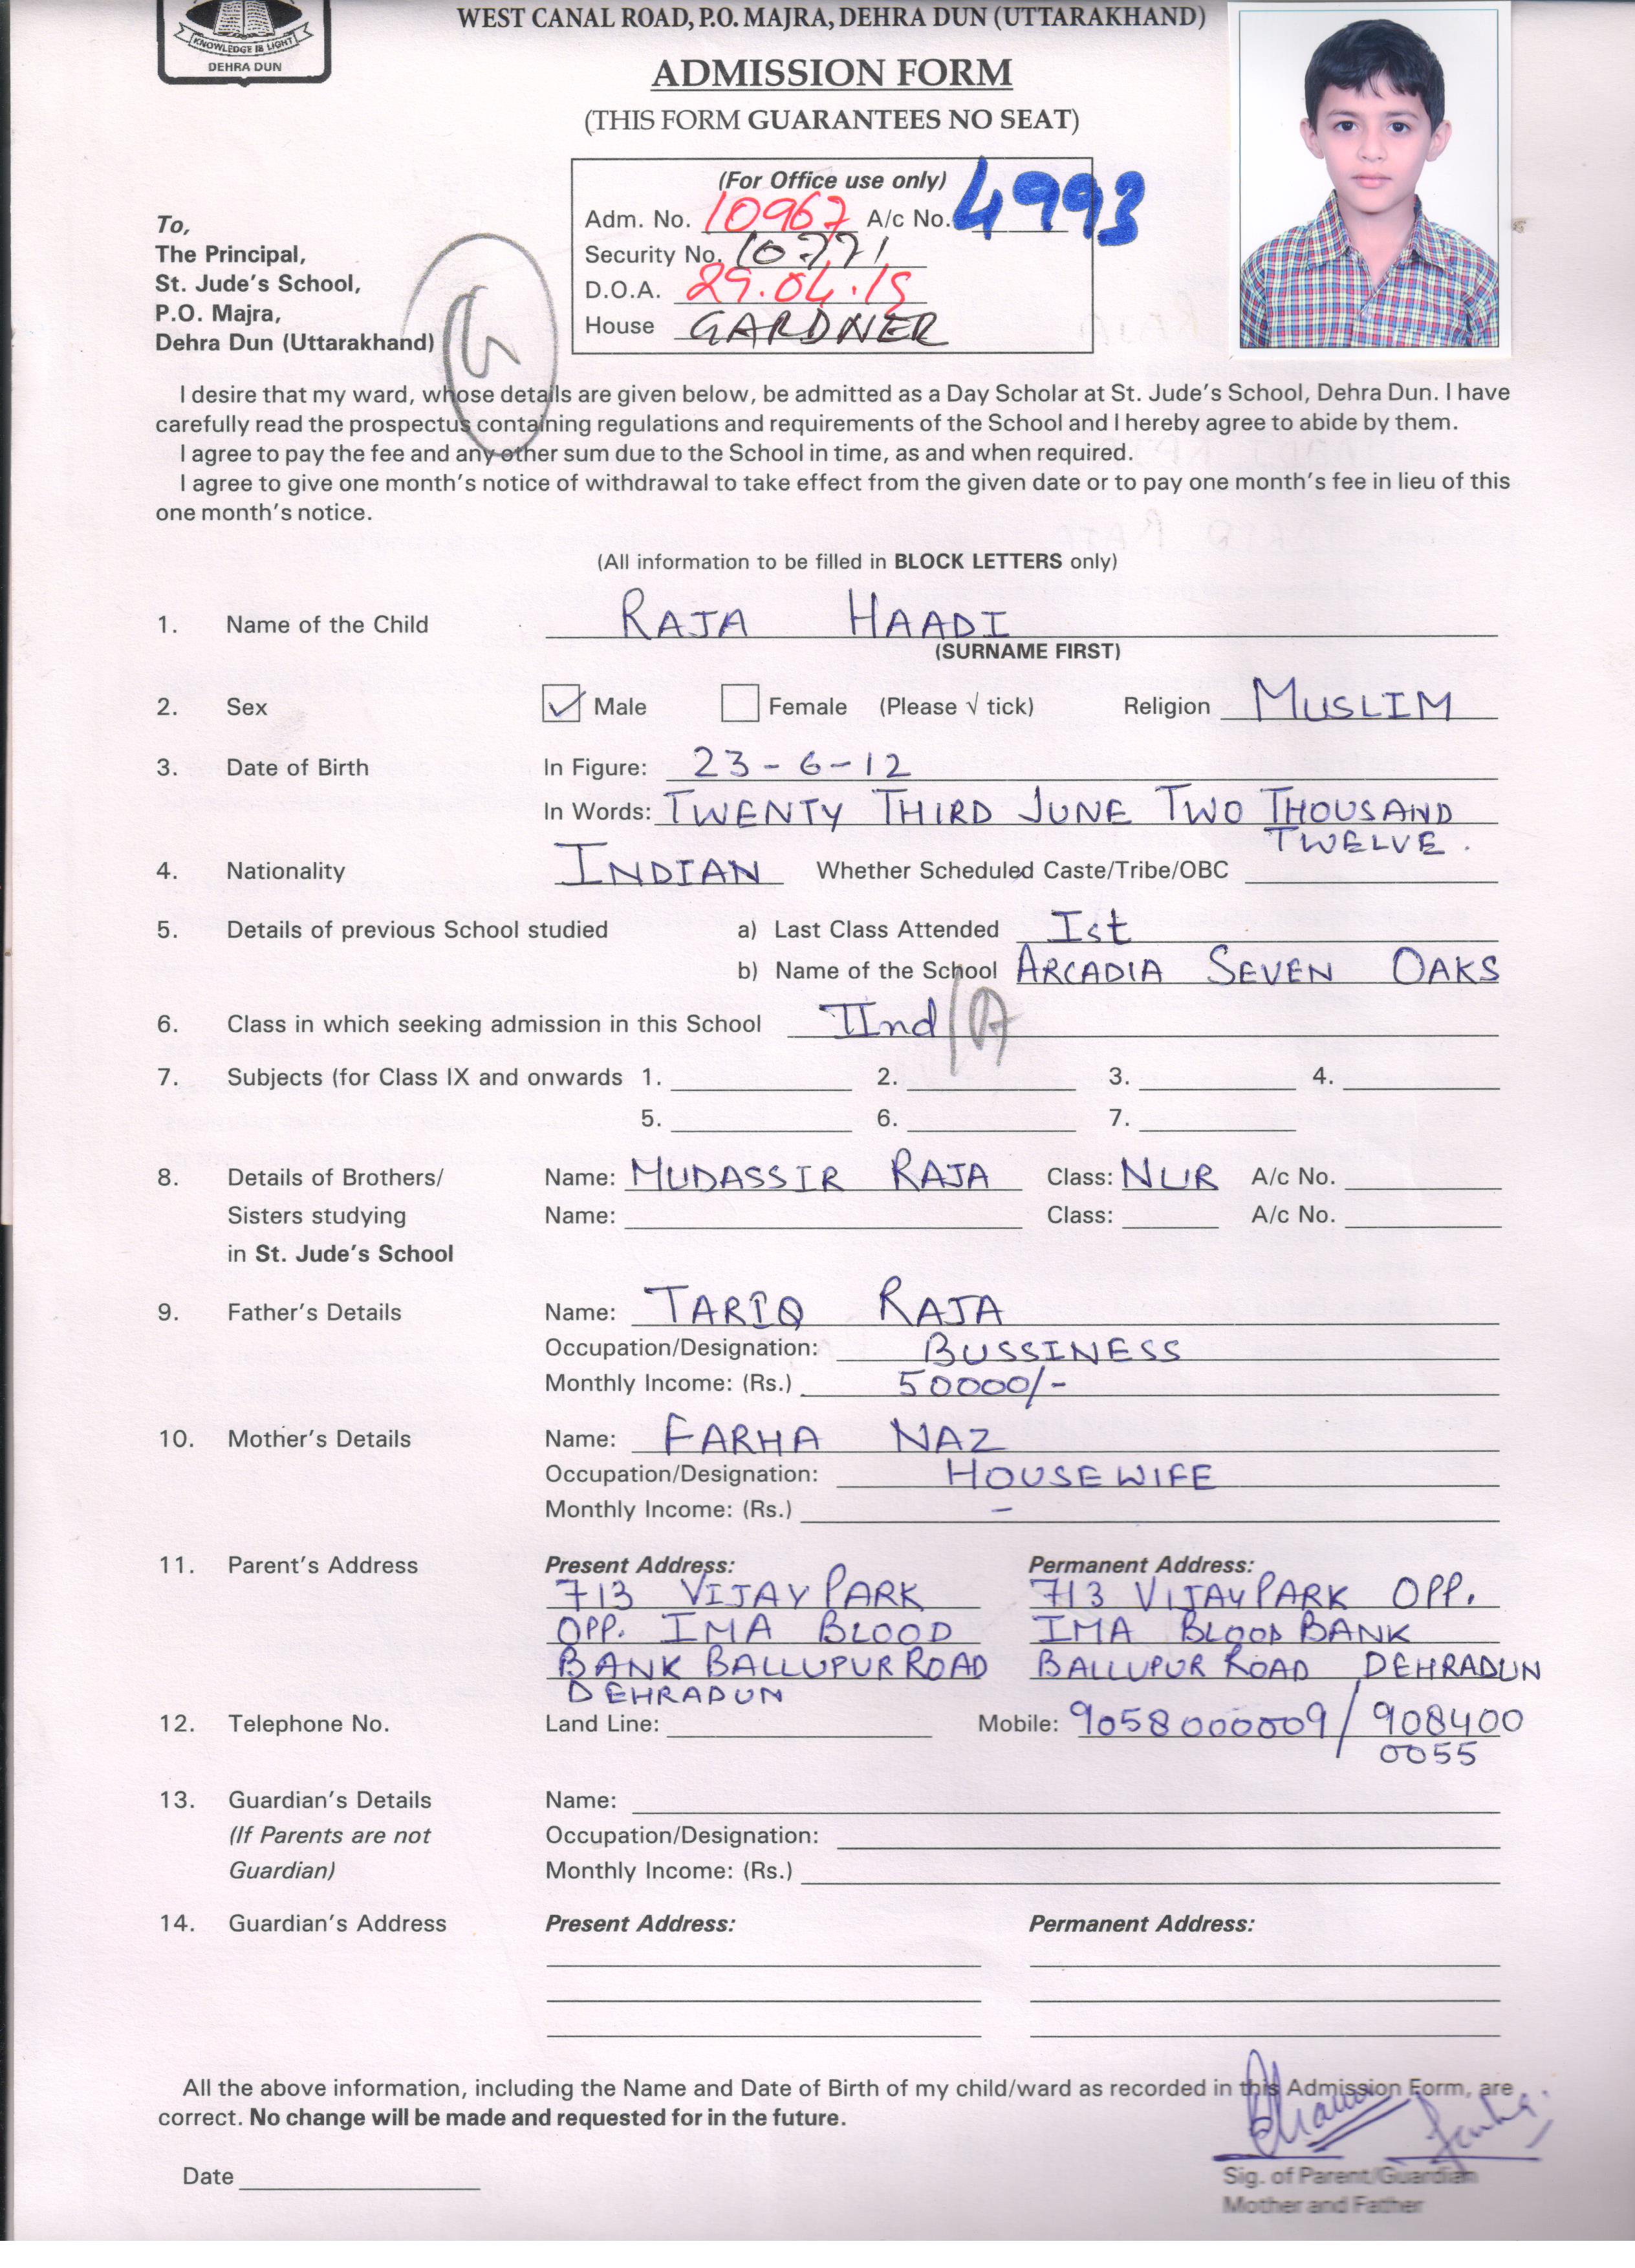 KNOWLEDGE IS LIGHT
DEHRA DUN
WEST CANAL ROAD, P.O. MAJRA, DEHRA DUN (UTTARAKHAND)
ADMISSION FORM
(THIS FORM GUARANTEES NO SEAT)
(For Office use only)
Adm. No. 10967 A/c No. 4993
Security No. 10771
D.O.A. 29.04.19
House GARDNER
To,
The Principal,
St. Jude's School,
P.O. Majra,
Dehra Dun (Uttarakhand)
I desire that my ward, whose details are given below, be admitted as a Day Scholar at St. Jude's School, Dehra Dun. I have
carefully read the prospectus containing regulations and requirements of the School and I hereby agree to abide by them.
I agree to pay the fee and any other sum due to the School in time, as and when required.
I agree to give one month's notice of withdrawal to take effect from the given date or to pay one month's fee in lieu of this
one month's notice.
(All information to be filled in BLOCK LETTERS only)
1. Name of the Child RAJA HAADI
(SURNAME FIRST)
2. Sex ✓ Male Female (Please √ tick) Religion MUSLIM
3. Date of Birth In Figure: 23-6-12
In Words: TWENTY THIRD JUNE TWO THOUSAND
TWELVE.
4. Nationality INDIAN Whether Scheduled Caste/Tribe/OBC
5. Details of previous School studied a) Last Class Attended Ist
b) Name of the School ARCADIA SEVEN OAKS
6. Class in which seeking admission in this School IInd
7. Subjects (for Class IX and onwards 1. 2. 3. 4.
5. 6. 7.
8. Details of Brothers/ Name: MUDASSIR RAJA Class: NUR A/c No.
Sisters studying Name: Class: A/c No.
in St. Jude's School
9. Father's Details Name: TARIQ RAJA
Occupation/Designation: BUSSINESS
Monthly Income: (Rs.) 50000/-
10. Mother's Details Name: FARHA NAZ
Occupation/Designation: HOUSEWIFE
Monthly Income: (Rs.) –
11. Parent's Address Present Address: Permanent Address:
713 VIJAY PARK 713 VIJAY PARK OPP.
OPP. IMA BLOOD IMA BLOOD BANK
BANK BALLUPUR ROAD BALLUPUR ROAD DEHRADUN
DEHRADUN
12. Telephone No. Land Line: Mobile: 9058000009/908400
0055
13. Guardian's Details Name:
(If Parents are not Occupation/Designation:
Guardian) Monthly Income: (Rs.)
14. Guardian's Address Present Address: Permanent Address:
All the above information, including the Name and Date of Birth of my child/ward as recorded in this Admission Form, are
correct. No change will be made and requested for in the future.
Date
Sig. of Parent/Guardian
Mother and Father